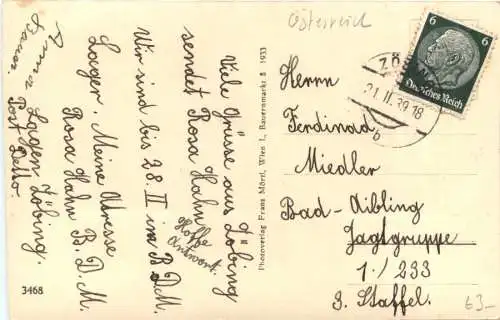 Österreich
Viele Grüsse aus Zöbing
sendet Rosa Hahn
Hoffe
Antwort.
Wir sind bis 28. II im B.D.M.
Lager. Meine Adresse
Rosa Hahn B.D.M.
Lagen Zöbing.
Post Detto.
Photoverlag Franz Mörtl, Wien I., Bauernmarkt 3 1933
3468
6 6
Deutsches Reich
21.II.39.18
b
Herrn
Ferdinad
Miedler
Bad-Aibling
Jagtgruppe
1./233
3. Staffel.
63-